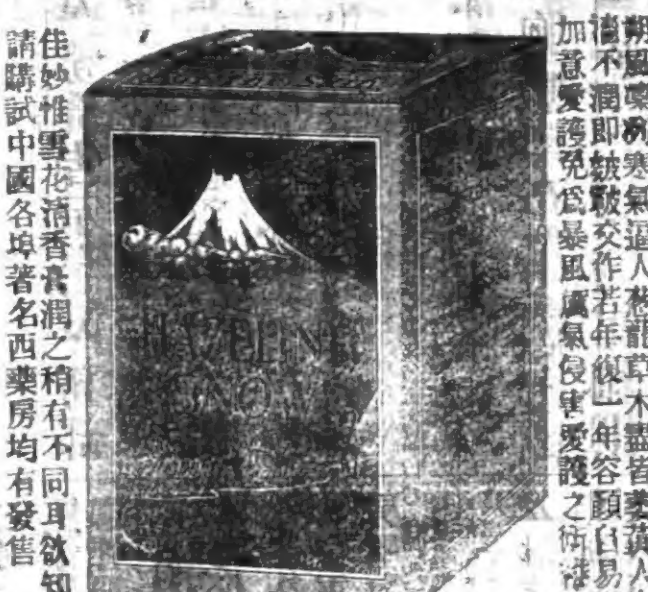 朔風凜冽寒氣逼人葱蘢草木盡皆萎黃人
不潤即皴交作若年復一年容顏自易
加意愛護免爲暴風厲氣侵害愛護之術
HAZELINE
SNOW
佳妙惟雪花清香膏潤之稍有不同耳欲知
請購試中國各埠著名西藥房均有發售